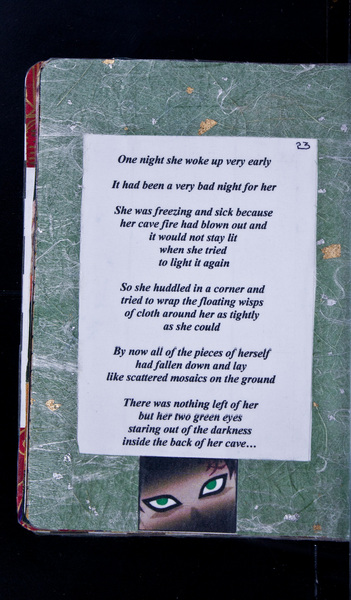 23
One night she woke up very early
It had been a very bad night for her
She was freezing and sick because
her cave fire had blown out and
it would not stay lit
when she tried
to light it again
So she huddled in a corner and
tried to wrap the floating wisps
of cloth around her as tightly
as she could
By now all of the pieces of herself
had fallen down and lay
like scattered mosaics on the ground
There was nothing left of her
but her two green eyes
staring out of the darkness
inside the back of her cave...